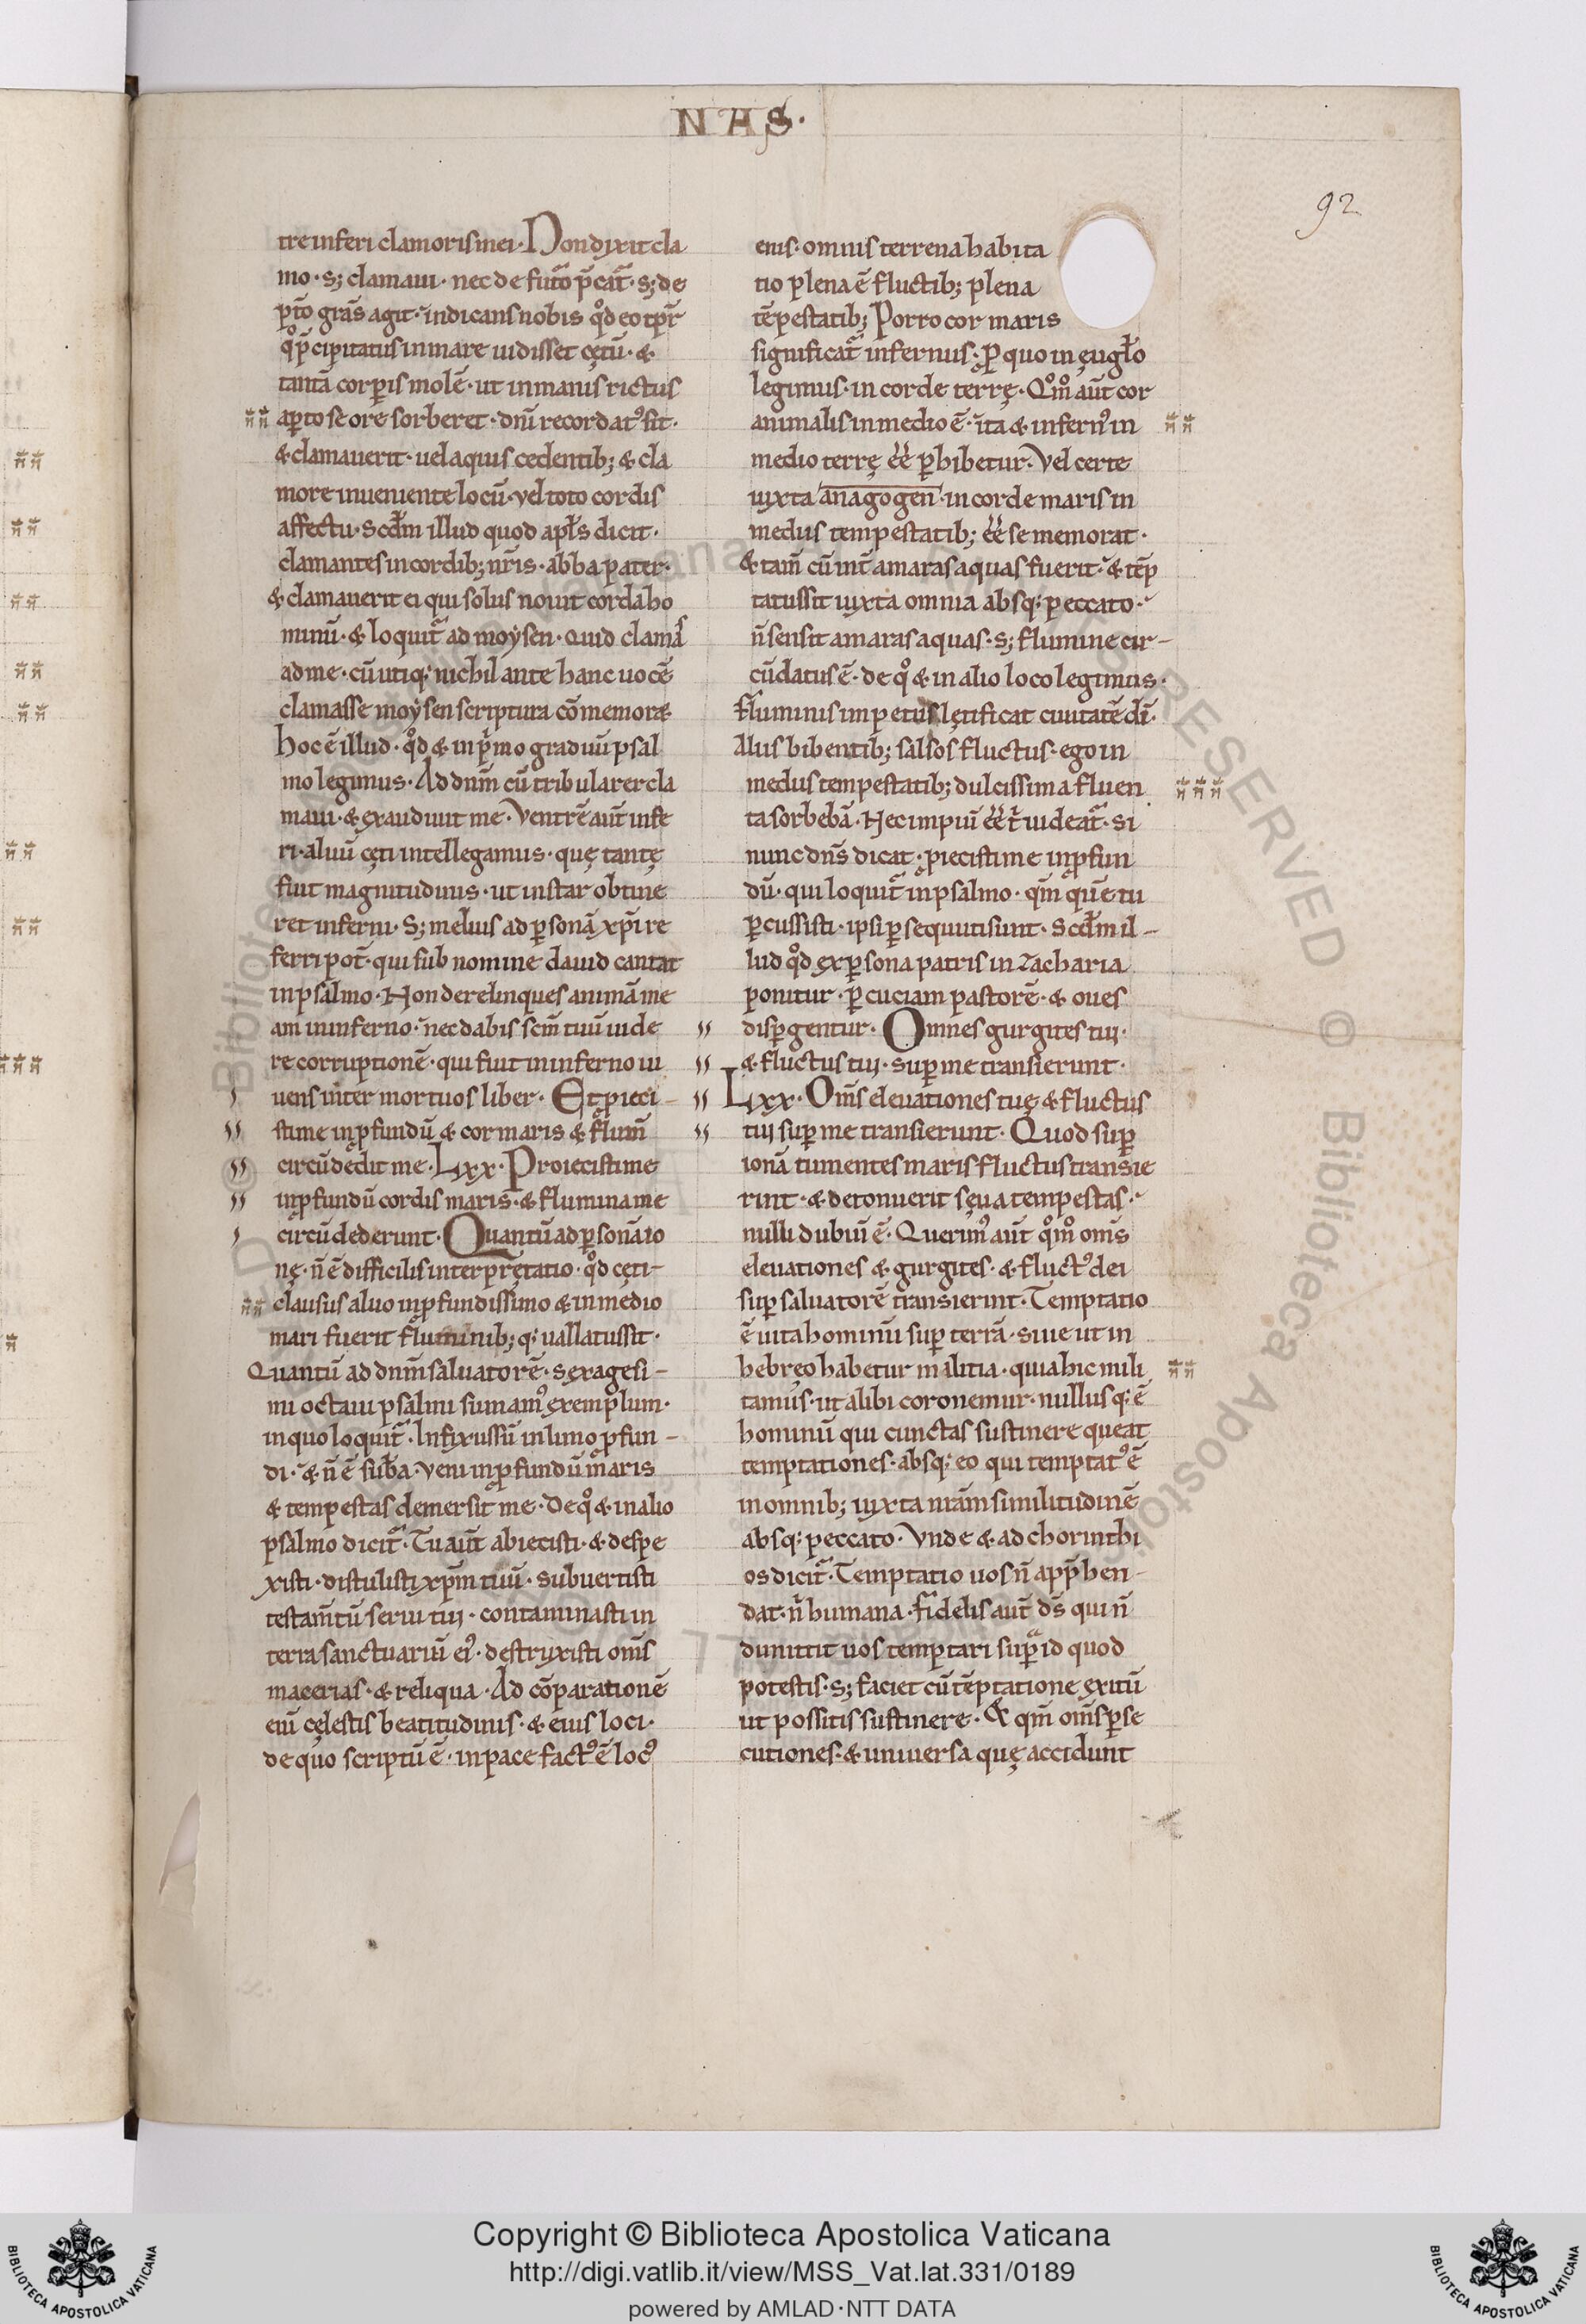 NAS·
92
tre inferi clamoris mei· Non dixit cla
mo· s; clamaui· nec de futo p̄cat᷑· s; de
p̄to grās agit· indicans nobis qd̊ eo tp̄r
q̊ p̄cipitatus in mare uidisset cętū· &
tantā corꝑis molē· ut inmanis rictus
aꝑto se ore sorberet· dn̄i recordatꝰ sit·
& clamauerit· uel aquis cedentib; & cla
more inueniente locū· vel toto cordis
affectu· Scdm̄ illud quod apłs dicit·
clamantes in cordib; nr̄is· abba pater·
& clamauerit ei qui solus nouit corda ho
minū· & loquit᷑ ad moẏsen· quid clamas
ad me· cū utiq; nichil ante hanc uocē
clamasse moẏsen scriptura cōmemor&
hoc ē illud· qd̊ & in pⁱmo graduū psal
mo legimus· Ad dnm̄ cū tribularer cla
maui· & exaudiuit me· Ventrē aut̄ infe
ri· aluū cęti intellegamus· quę tantę
fuit magnitudinis· ut instar obtine
ret inferni· S; melius ad ꝑsonā xp̄i re
ferri pot̄· qui sub nomine dauid cantat
in psalmo· Non derelinques animā me
am in inferno· nec dabis scm̄ tuū uide
re corruptionē· qui fuit in inferno ui
uens inter mortuos liber· Et ꝓieci-
sti me in ꝓfundū & cor maris & flum̄
circūdedit me· Lxx· Proiecisti me
in ꝓfundū cordis maris· & flumina me
circūdederunt· Quantū ad ꝑsonā io
nę· n̄ ē difficilis interpretatio· qd̊ cęti-
clausus aluo in ꝓfundissimo & in medio
mari fuerit fluminib; q; uallatus sit·
Quantū ad dnm̄ saluatorē· sexagesi-
mi octaui psalmi sumamꝰ exemplum·
in quo loquit᷑· Infixus sū in limo ꝓfun-
di· & n̄ ē sub̄a· veni in ꝓfundū maris
& tempestas demersit me· De q̊ & in alio
psalmo dicit᷑· Tu aut̄ abiecisti· & despe
xisti· distulisti xp̄m tuū· subuertisti
testam̄tū serui tui· contaminasti in
terra sanctuariū eiꝰ· destruxisti om̄s
macerias· & reliqua· Ad cōparationē
eiū cęlestis beatitudinis· & eius loci·
de quo scriptū ē· in pace factꝰ ē locꝰ
eius· omnis terrena habita
tio plena ē fluctib; plena
tēpestatib; Porro cor maris
significat᷑ infernus· ꝓ quo in ęuglo
legimus· in corde terrę· Qm̊ aut̄ cor
animalis in medio ē· ita & infernꝰ in
medio terrę ēē ꝑhibetur· Vel certe
iuxta anagogen· in corde maris in
mediis tempestatib; ēē se memorat·
& tam̄ cū int̄ amaras aquas fuerit· & tēp
tatus sit iuxta omnia absq; peccato·
n̄ sensit amaras aquas· s; flumine cir-
cūdatus ē· de q̊ & in alio loco legimus·
Fluminis impetus lętificat ciuitatē di̅·
Aliis bibentib; salsos fluctus· ego in
mediis tempestatib; dulcissima fluen
ta sorbebā· Nec impiū ēēt̄ uideat᷑· si
nunc dn̄s dicat· ꝓiecisti me in ꝓfun
dū· qui loquit᷑ in psalmo· qm̄ quē tu
ꝑcussisti· ipsi ꝑsequuti sunt· Scdm̄ il-
lud qd̊ ex ꝑsona patris in Zacharia
ponitur· ꝑcuciam pastorē· & oues
disꝑgentur· Omnes gurgites tui·
& fluctus tui· suꝑ me transierunt·
Lxx· Om̄s eleuationes tuę & fluctus
tui suꝑ me transierunt· Quod suꝑ
ionā tumentes maris fluctus transie
rint· & detonuerit sęua tempestas·
nulli dubiū ē· Querimꝰ aut̄ qm̊ om̄s
eleuationes & gurgites· & fluctꝰ dei
suꝑ saluatorē transierint· Temptatio
ē uita hominū suꝑ terrā· siue ut in
hebręo habetur militia· quia hic mili
tamus· ut alibi coronemur· nullusq; ē
hominū qui cunctas sustinere queat
temptationes· absq; eo qui temptatꝰ ē
in omnib; iuxta nr̄am similitudinē
absq; peccato· Vnde & ad chorinthi
os dicit᷑· Temptatio uos n̄ app̄hen-
dat· nⁱ humana· fidelis aut̄ ds̄ qui n̄
dimittit uos temptari supᵃ id quod
potestis· S; faciet cū tēptatione exitū
ut possitis sustinere· & qm̄ om̄s ꝑse
cutiones· & uniuersa quę accidunt
Copyright © Biblioteca Apostolica Vaticana
http://digi.vatlib.it/view/MSS_Vat.lat.331/0189
powered by AMLAD·NTT DATA